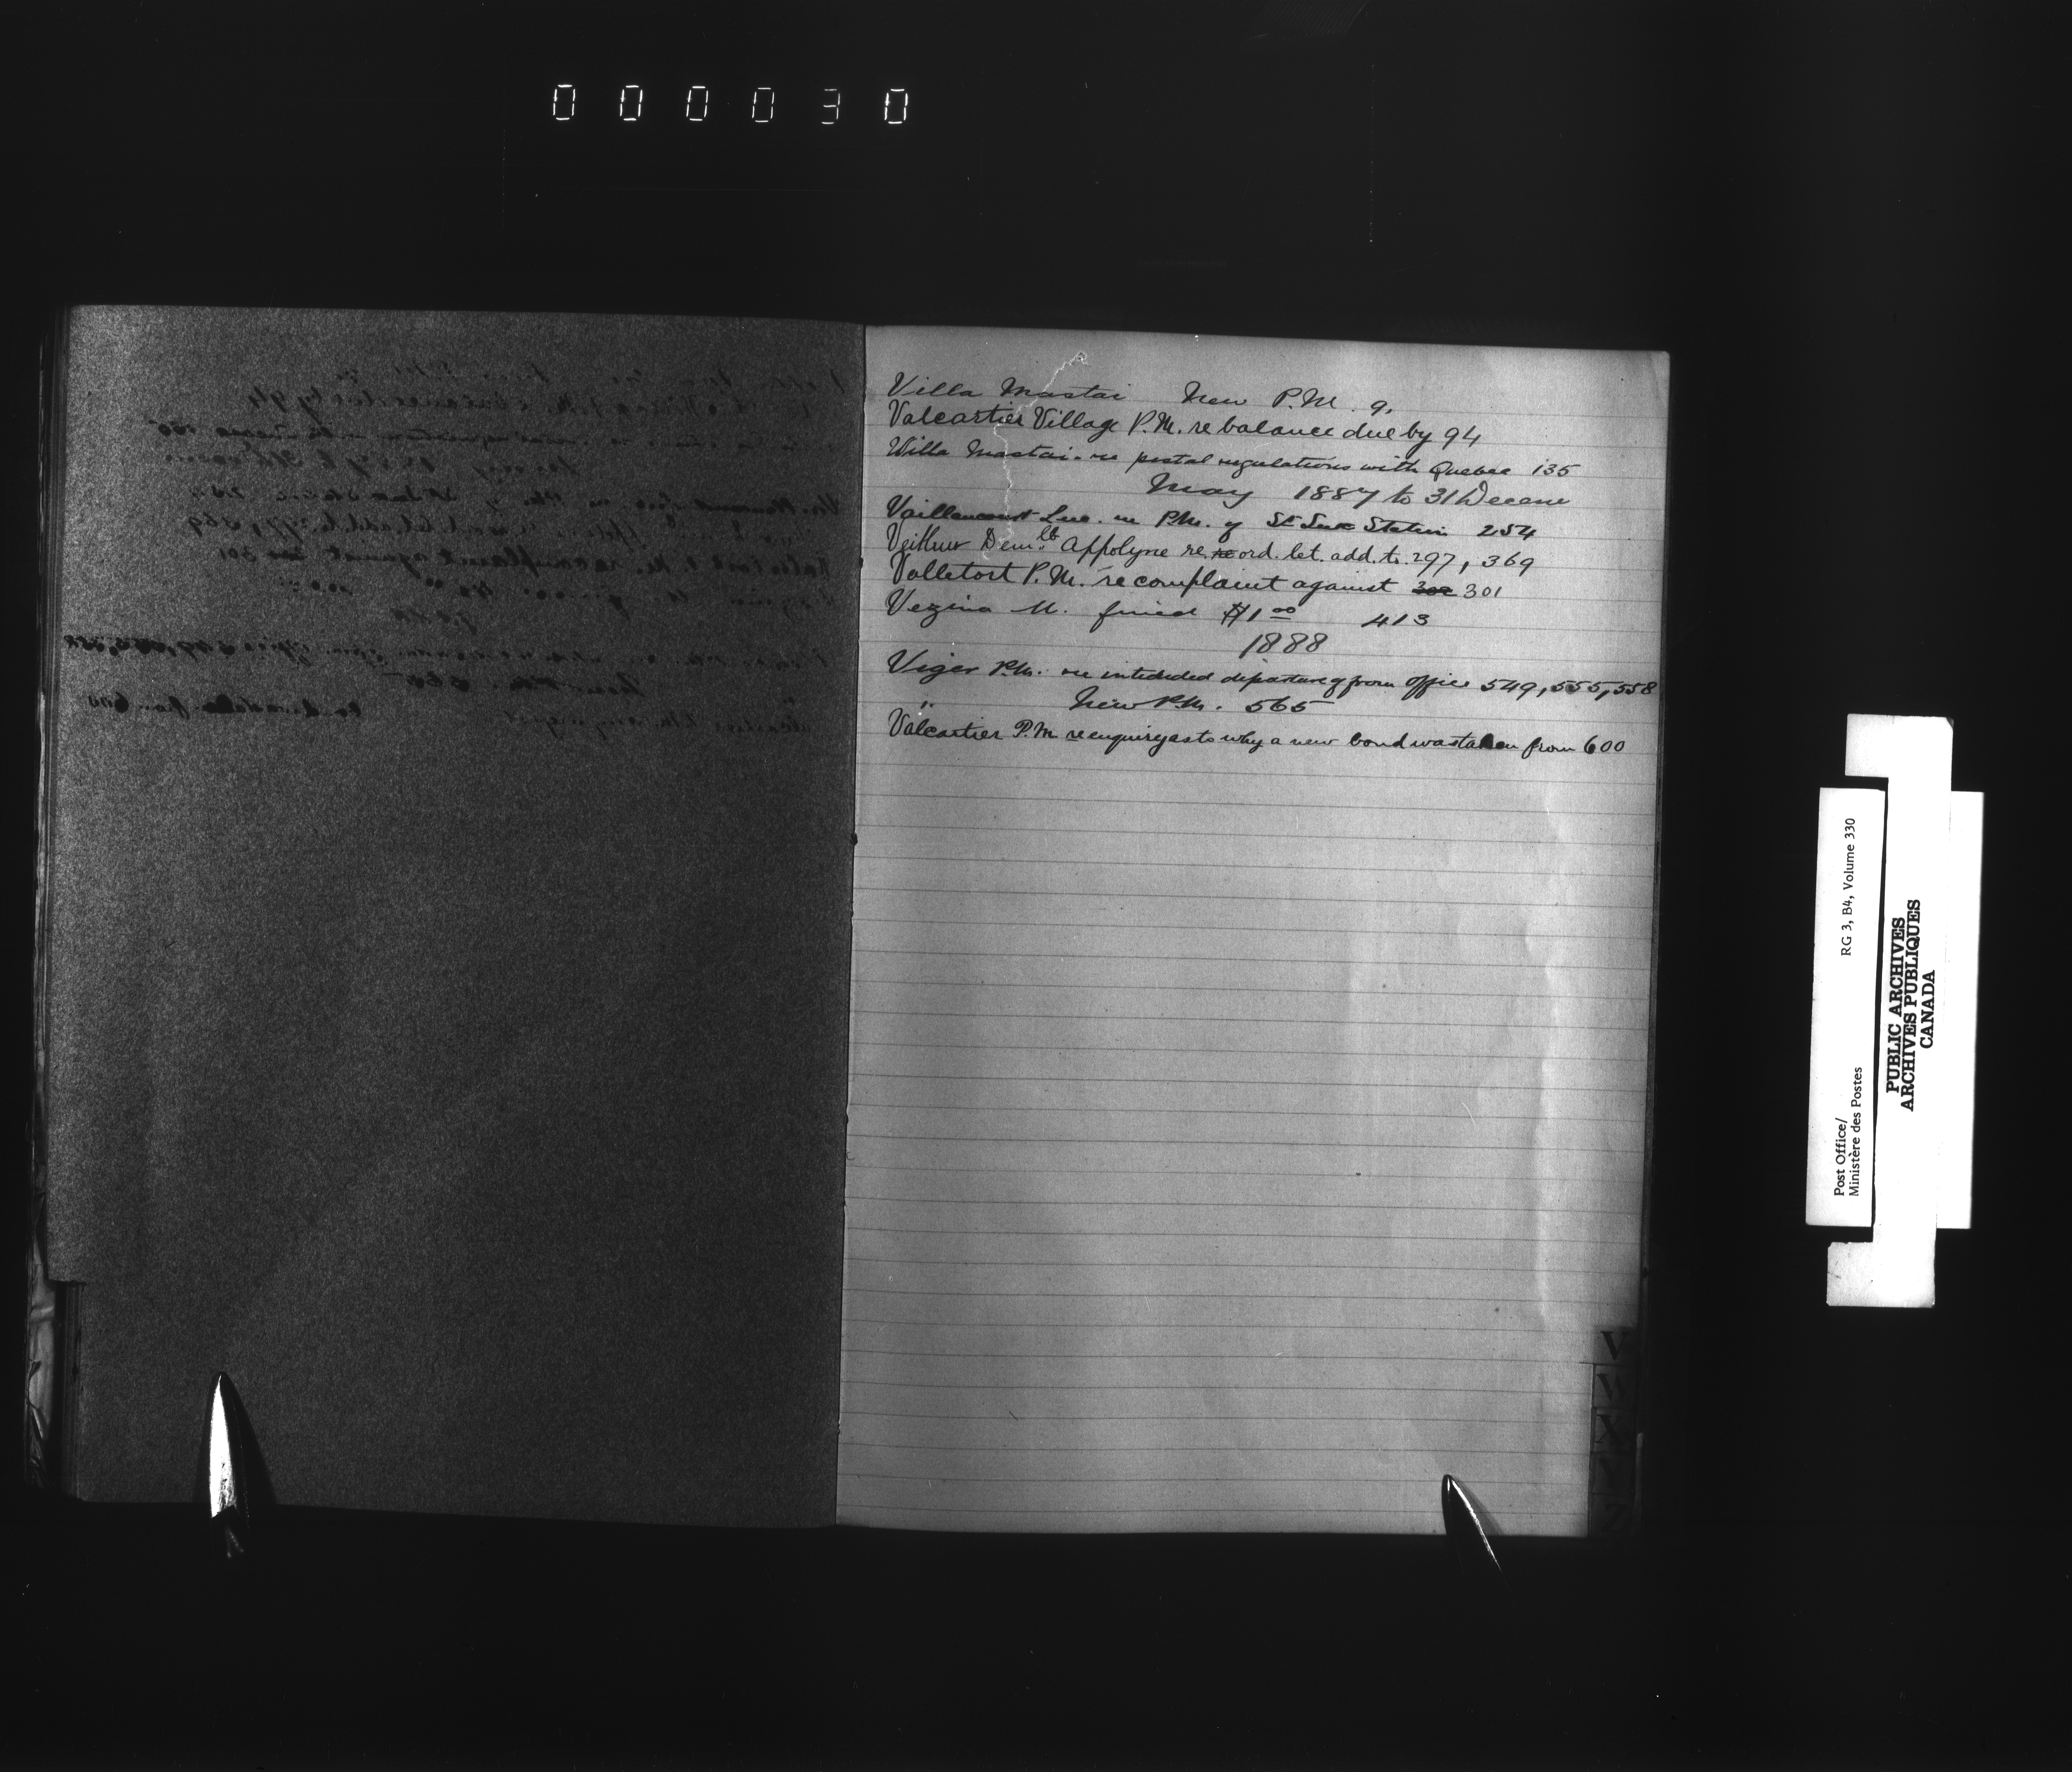 000030
Villa Mastai New P.M. 9.
Valcartier Village P.M. re balance due by 94
Villa Mastai. re postal regulations with Quebec 135
May 1887 to 31 Decem
Vaillancourt Luc. re P.M. of St Luc Station 254
Dem.lle Appolyne re. re ord. let. add. to. 297, 369
Valletort P.M. re complaint against 302 301
Vezina M. fined $1 00 413
1888
Viger P.M. re intended departure from office 549, 555, 558
" New P.M. 565
Valcartier P.M. re enquiry as to why a new bond was taken from 600
V
W
X
Y
Z
Post Office/
Ministère des Postes
RG 3, B4, Volume 330
PUBLIC ARCHIVES
ARCHIVES PUBLIQUES
CANADA